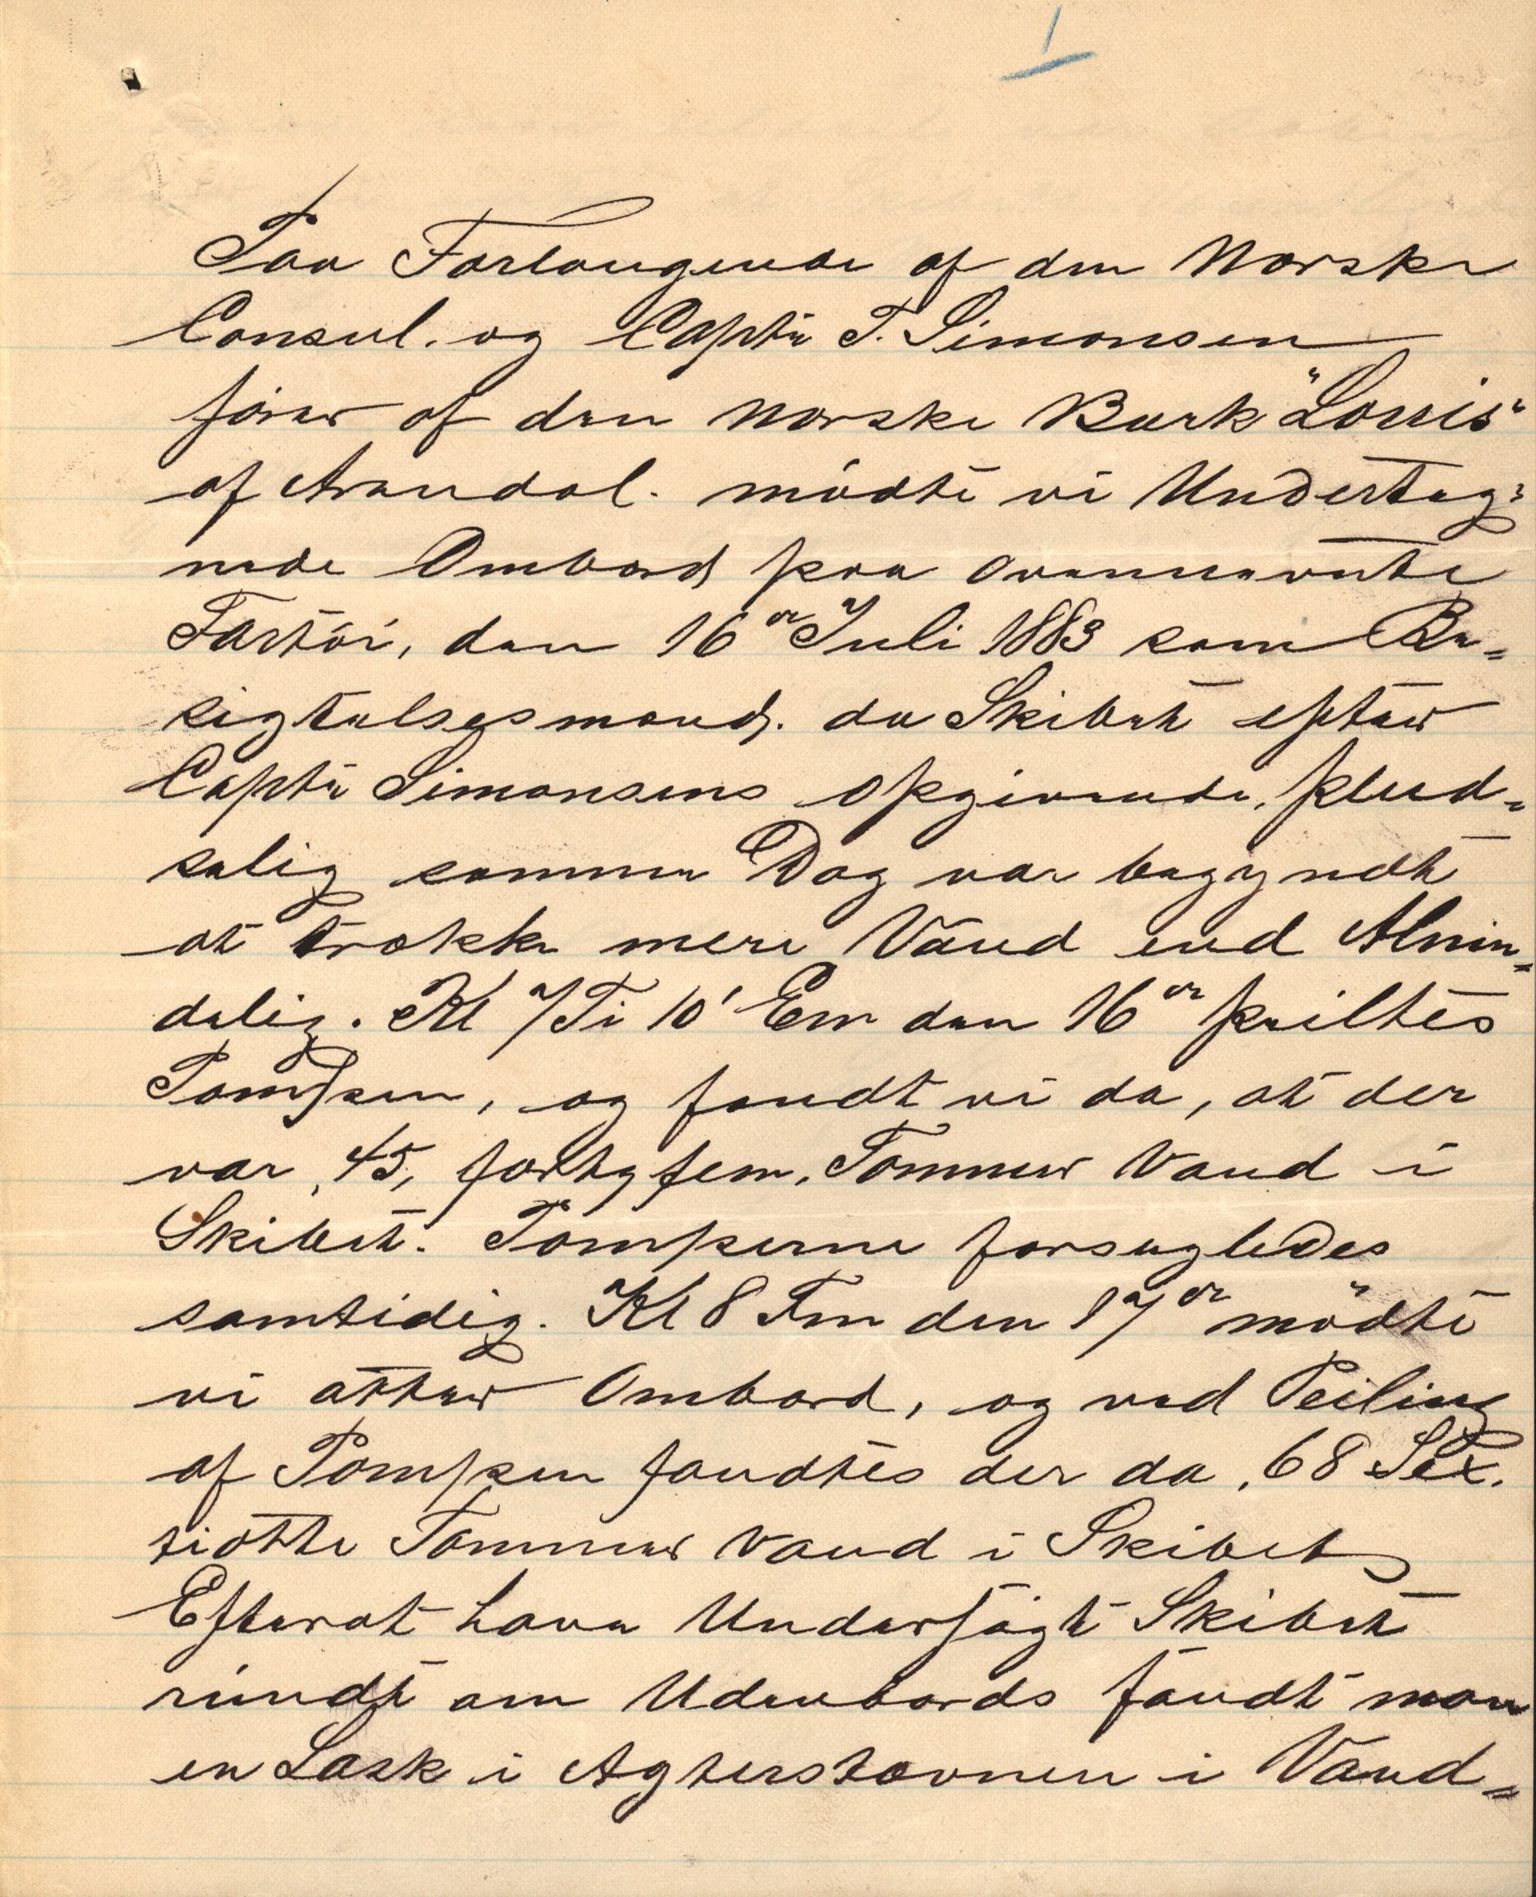 1
Paa Forlangende af den Norske
Consul. og Captn T. Simonsen
förer af den norske Bark "Louis"
af Arendal. mödte vi Underteg=
nede Ombord paa ovennævnte
Fartöi, den 16de Juli 1883 som Be=
sigtelsesmænd. da Skibet efter
Captn Simonsens opgivende, plud=
selig samme Dag var begyndt
at trække mere Vand end Almin=
delig. Kl 7 Ti 10' Em den 16de peiltes
Pompen, og fandt vi da, at der
var, 45, fortyfem, Tommer Vand i
Skibet. Pomperne forsegledes
samtidig. Kl 8 Fm den 17de mödte
vi atter Ombord, og ved Peiling
af Pompen fandtes der da, 68 Sex.
tiotte Tommer Vand i Skibet
Efterat have Undersögt Skibet
rundt om Udenbords fandt man
en Læk i Agterstævnen i Vand=